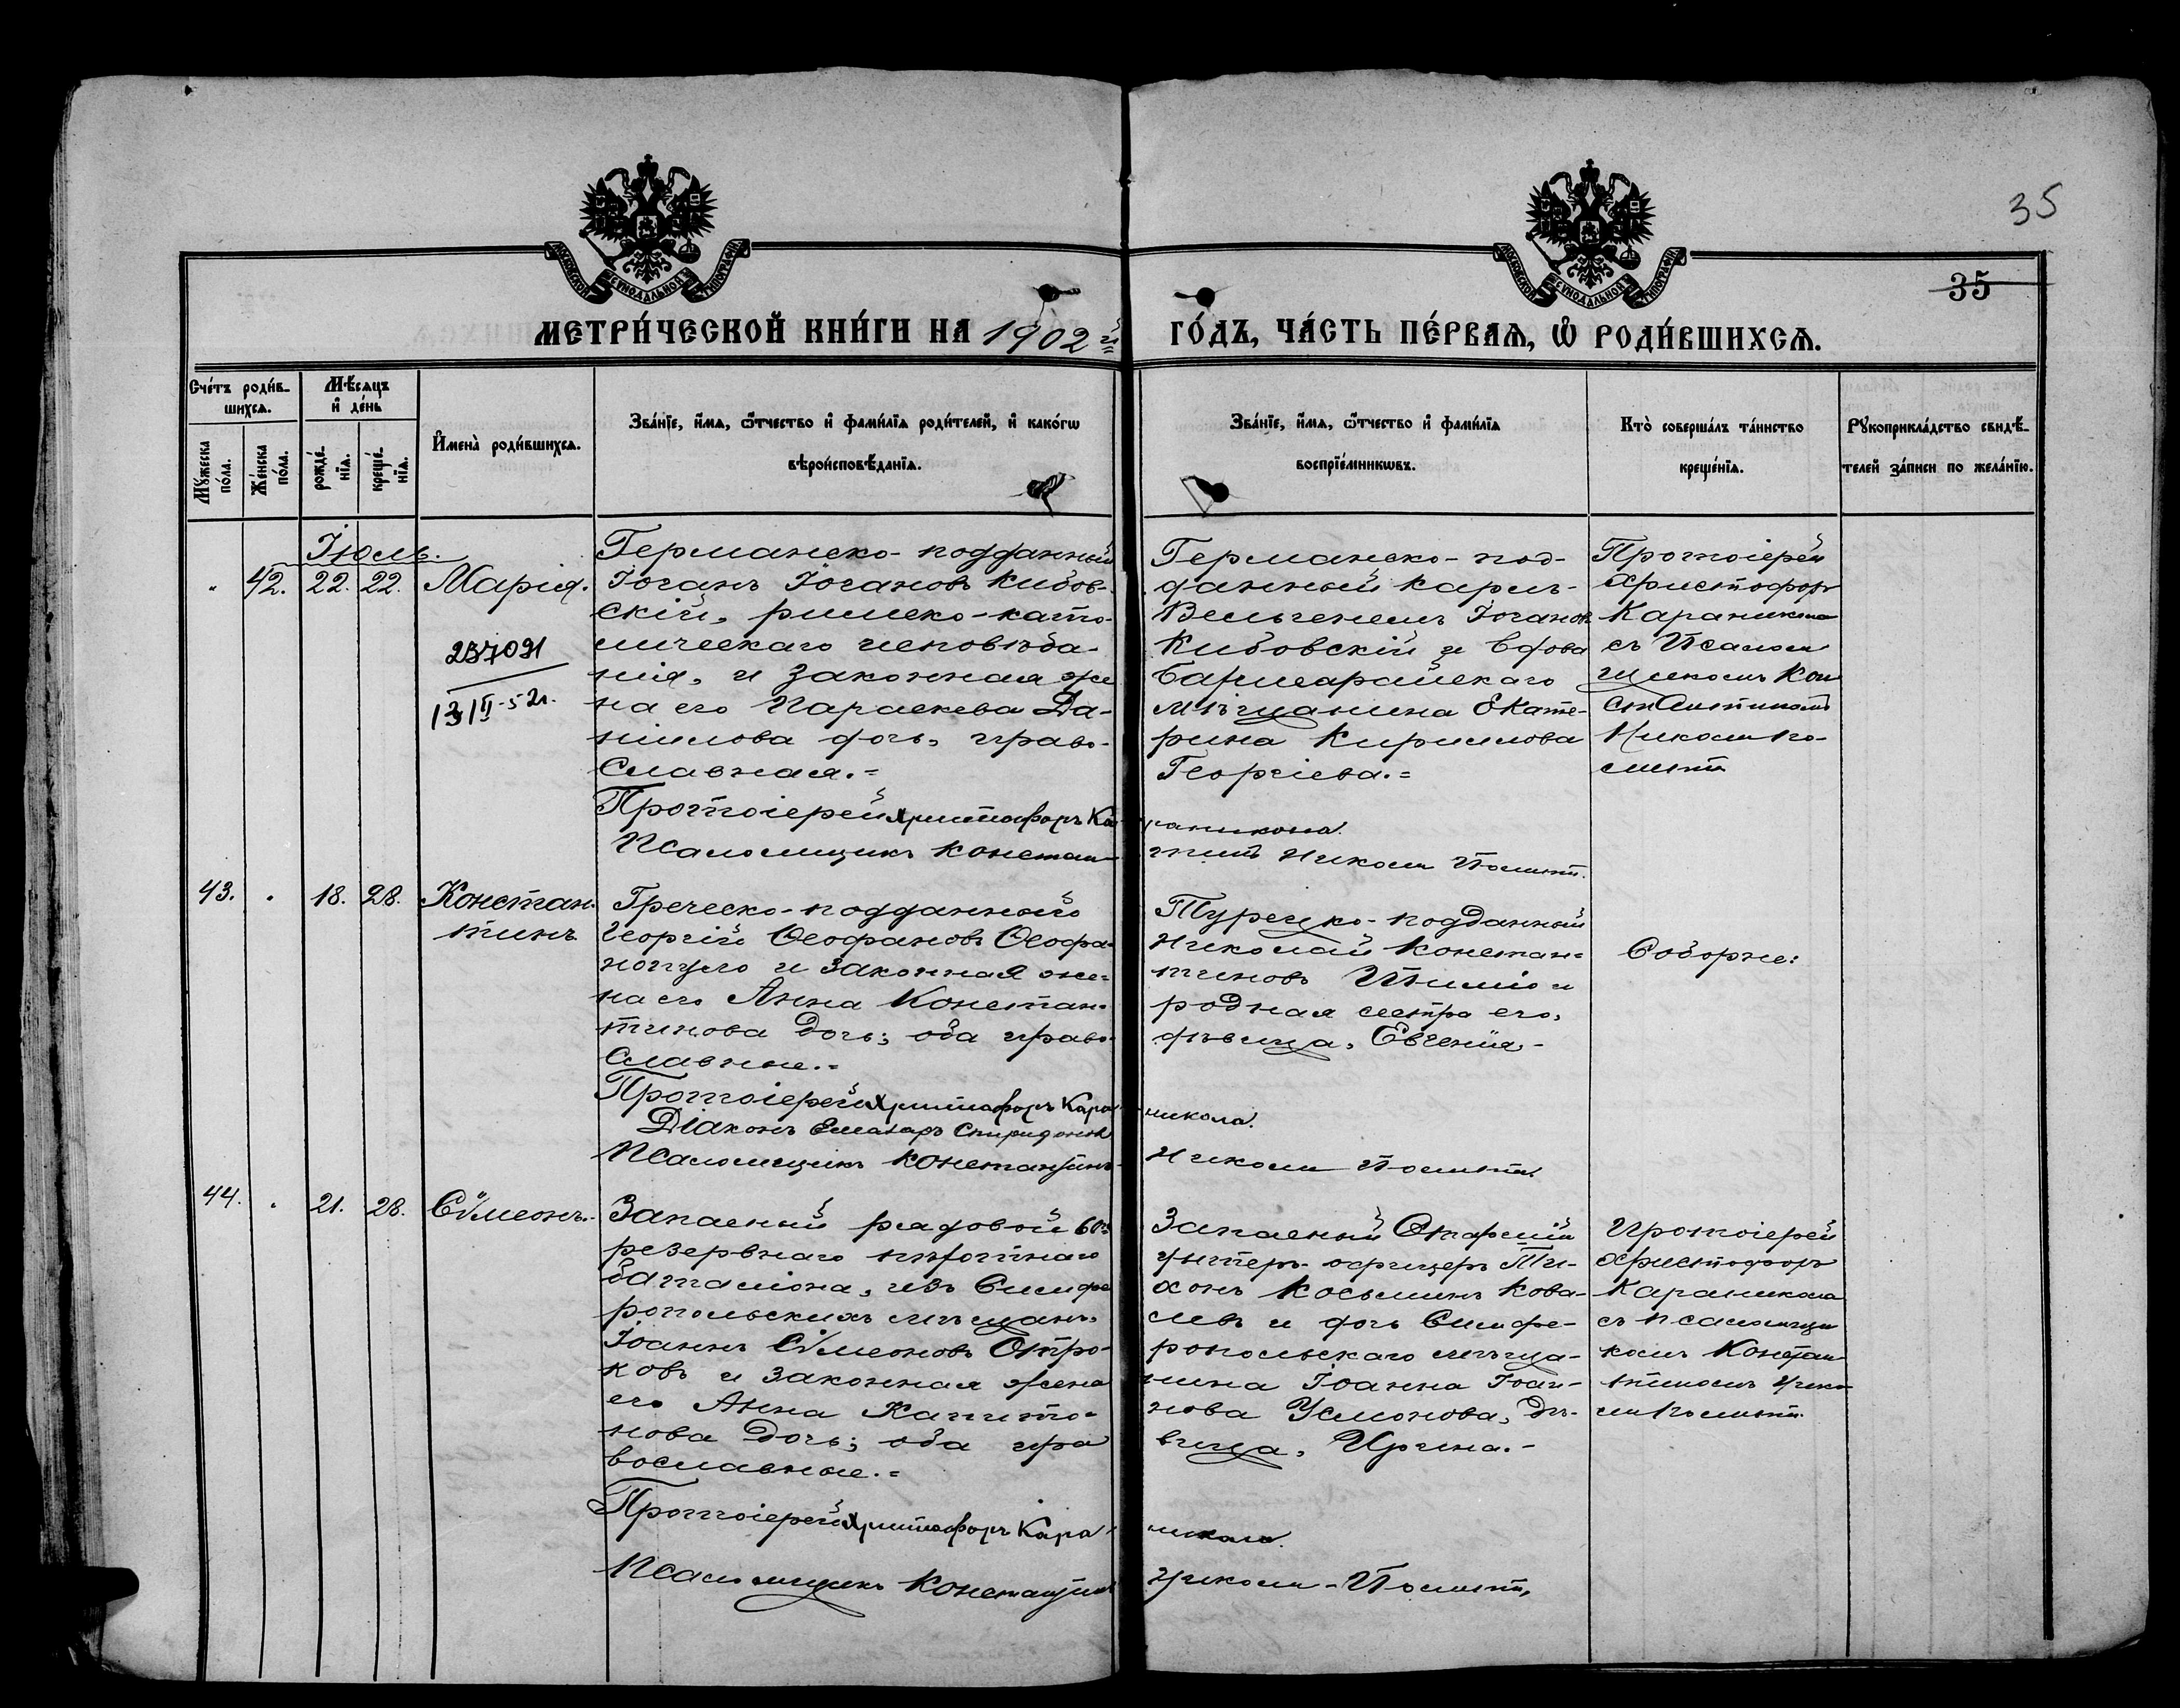 35
МОСКОВСКОЙ СѴНОДАЛЬНОЙ ТИПОГРАФІИ
МОСКОВСКОЙ СѴНОДАЛЬНОЙ ТИПОГРАФІИ
35
МЕТРИ́ЧЕСКОЙ КНИ́ГИ НА 1902й
ГО́ДЪ, ЧА́СТЬ ПЕ́РВАѦ, Ѡ҆ РОДИ́ВШИХСѦ.
Сче́тъ роди́в-
шихсѧ.
Мѣ́сѧцъ
и҆ де́нь
Мꙋ́жеска
по́ла.
Же́нска
по́ла.
рожде́-
нїѧ.
креще́-
нїѧ.
И҆мена̀ роди́вшихсѧ.
Зва́нїе, и҆́мѧ, ѻ҆́тчество и҆ фами́лїѧ роди́телей, и҆ како́гѡ
вѣроисповѣ́данїѧ.
Зва́нїе, и҆́мѧ, ѻ҆́тчество и҆ фами́лїѧ
воспрїе́мникѡвъ.
Кто̀ соверша́лъ та́инство
креще́нїѧ.
Рꙋкоприкла́дство свидѣ́-
телей за́писи по жела́нїю.
Іюль.
42. 22. 22. Марія.
237091
Германско-подданный
Іоганъ Іогановъ Кибов-
скій, римско-като-
лическаго исповѣда-
нія, и законная же
на его Параскева Да-
нилова дочь, право-
славная.=
Германско-под-
данный Карлъ-
Вельгельмъ Іоганов
Кибовскій и вдова
Бахчисарайскаго
мѣщанина Екате-
рина Кириллова
Георгіева.=
Протоіерей
Христофоръ
Караникола
съ Псалом
щикомъ Кон
стантиномъ
Протоіерей Христофоръ Караникола.
Псаломщикъ Константинъ
43. 18. 28. Констан-
тинъ
Греческо-подданный
Георгій Ѳеофановъ Ѳеофа-
нопуло и законная же-
на его Анна Констан-
тинова дочь; оба право-
славные.=
Турецко-подданный
Николай Констан-
тиновъ
родная сестра его,
дѣвица, Евгенія.-
Соборне:
Протоіерей Христофоръ Караникола.
Діаконъ Спиридоновъ
Псаломщикъ Константинъ
44. 21. 28. Сѵмеонъ.
Запасный рядовой 60го
резервнаго пѣхотнаго
баталіона, изъ Симфе
ропольскихъ мѣщанъ,
Іоаннъ Сѵмеоновъ Отро-
ковъ и законная жена
его Анна Капито-
нова дочь; оба пра
вославные.=
Запасный Старшій
унтеръ-офицеръ Ти-
хонъ Косьминъ Кова-
левъ и дочь Симфе-
ропольскаго мѣща-
нина Іоанна Іоан-
нова Усмонова, дѣ-
вица, Ирина.-
Протоіерей
Христофоръ
Караникола
съ псаломщи
комъ Констан
тиномъ
Протоіерей Христофоръ Караникола.
Псаломщикъ Константинъ